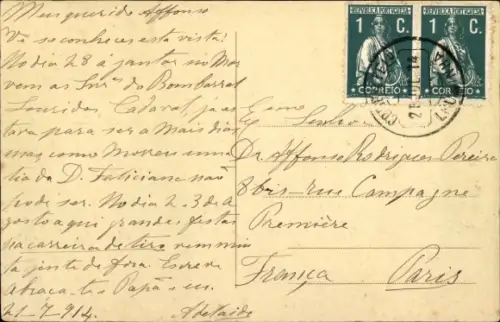 Meu querido Affonso
Ve se conheces esta vista!
No dia 28 á jantar no Mar
vem as Snr.as do Bombarral
Lourides Cadaval, ja es
tava para ser a Mais dias
mas como Morreu uma
tia da D. Feliciana não
pode ser. No dia 2. 3 de A
gosto aqui grandes festas
na carreira de tiro vem mui
ta jente de fora. Escreve
abraça-te o Papá e eu.
21-7-914. Adelaide
REPUBLICA PORTUGUESA
1 C.
CORREIO
REPUBLICA PORTUGUESA
1 C.
CORREIO
Exmo
Senhor
Dr. Affonso Rodrigues Pereira
8 bis-rue Campagne
Première
França Paris